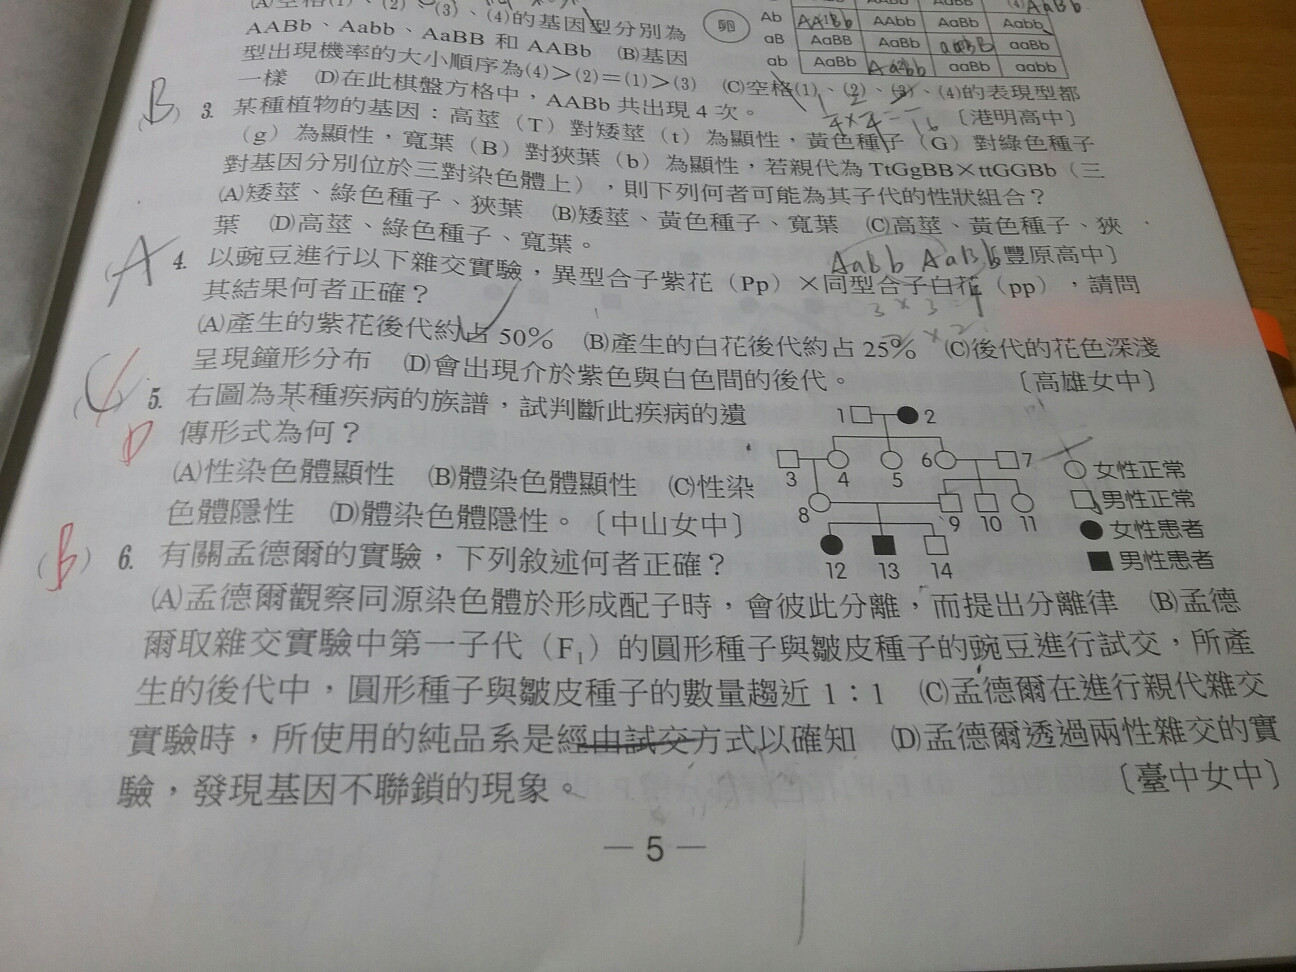 (A)空格(1)、(2)、(3)、(4)的基因型分別為
AABb、Aabb、AaBB 和 AABb (B)基因
型出現機率的大小順序為(4)>(2)=(1)>(3) (C)空格(1)、(2)、(3)、(4)的表現型都
一樣 (D)在此棋盤方格中，AABb 共出現 4 次。 〔港明高中〕
卵
AaBB AaBb (4)AaBb
Ab AABb AAbb AaBb Aabb
aB AaBB AaBb aaBB aaBb
ab AaBb Aabb aaBb aabb
(B) 3. 某種植物的基因：高莖（T）對矮莖（t）為顯性，黃色種子（G）對綠色種子
（g）為顯性，寬葉（B）對狹葉（b）為顯性，若親代為 TtGgBB×ttGGBb（三
對基因分別位於三對染色體上），則下列何者可能為其子代的性狀組合？
(A)矮莖、綠色種子、狹葉 (B)矮莖、黃色種子、寬葉 (C)高莖、黃色種子、狹
葉 (D)高莖、綠色種子、寬葉。 〔豐原高中〕
Aabb AaBb
(A) 4. 以豌豆進行以下雜交實驗，異型合子紫花（Pp）×同型合子白花（pp），請問
其結果何者正確？
(A)產生的紫花後代約占 50% (B)產生的白花後代約占 25% (C)後代的花色深淺
呈現鐘形分布 (D)會出現介於紫色與白色間的後代。 〔高雄女中〕
(C) 5. 右圖為某種疾病的族譜，試判斷此疾病的遺
D 傳形式為何？
(A)性染色體顯性 (B)體染色體顯性 (C)性染
色體隱性 (D)體染色體隱性。〔中山女中〕
1 2
3 4 5 6 7
8 9 10 11
12 13 14
女性正常
男性正常
女性患者
男性患者
(B) 6. 有關孟德爾的實驗，下列敘述何者正確？
(A)孟德爾觀察同源染色體於形成配子時，會彼此分離，而提出分離律 (B)孟德
爾取雜交實驗中第一子代（F₁）的圓形種子與皺皮種子的豌豆進行試交，所產
生的後代中，圓形種子與皺皮種子的數量趨近 1：1 (C)孟德爾在進行親代雜交
實驗時，所使用的純品系是經由試交方式以確知 (D)孟德爾透過兩性雜交的實
驗，發現基因不聯鎖的現象。 〔臺中女中〕
— 5 —